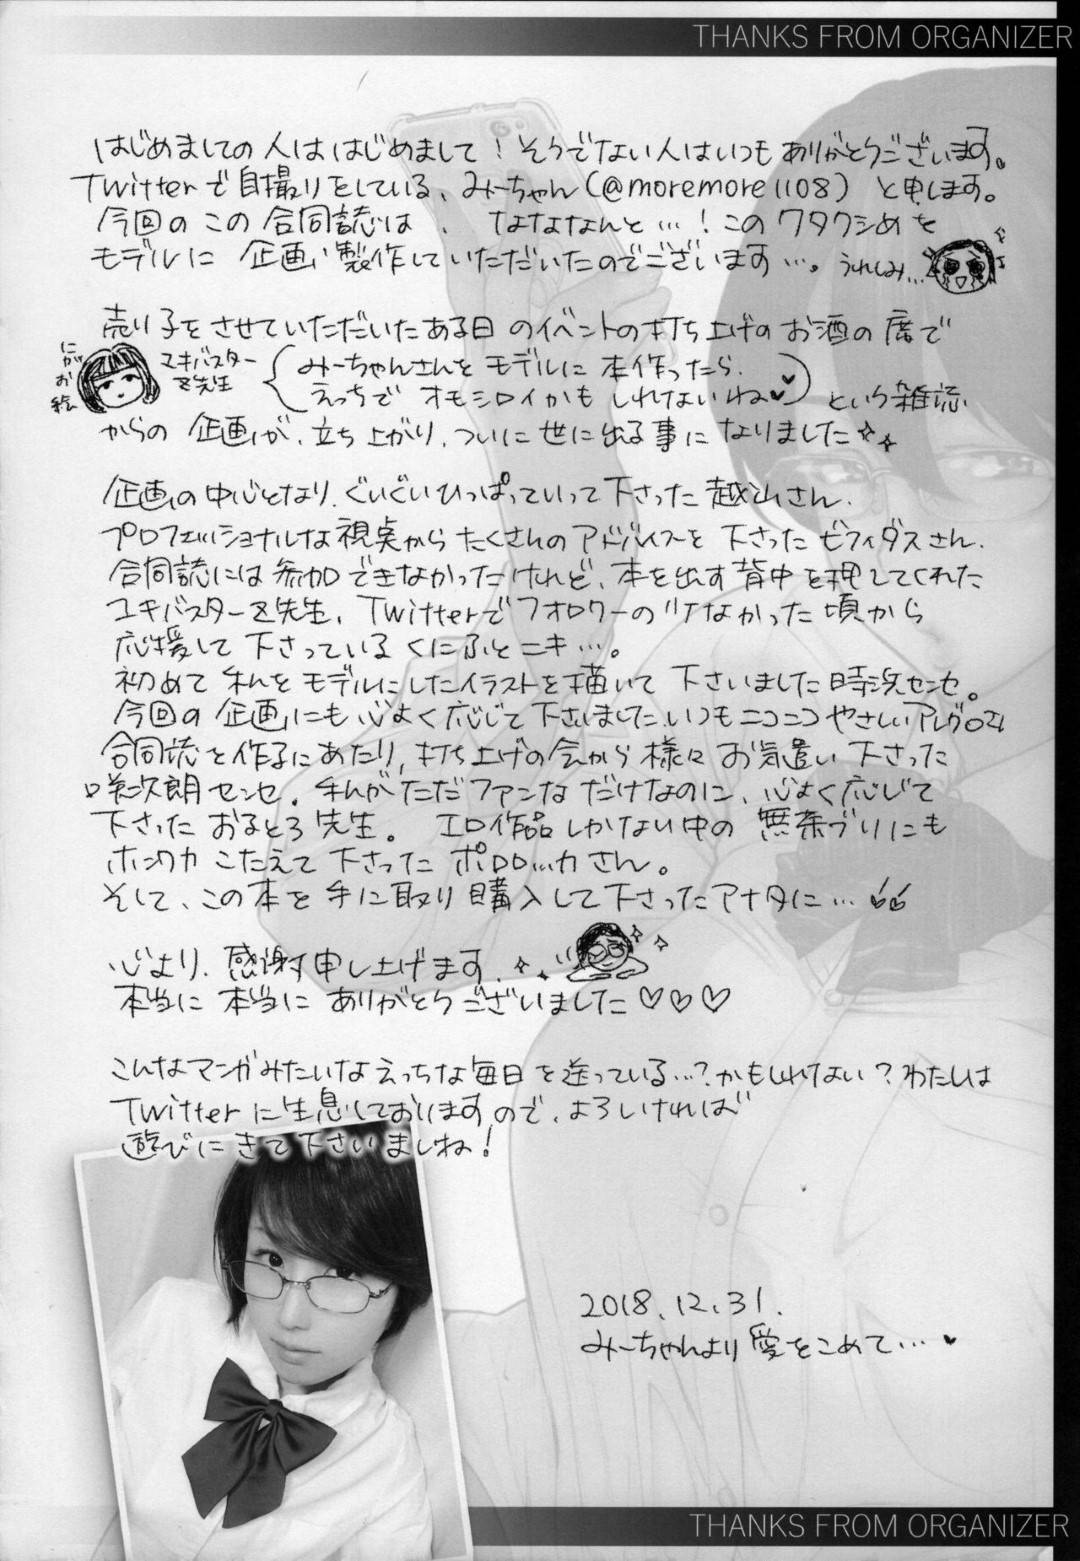 THANKS FROM ORGANIZER
はじめましての人は はじめまして！そうでない人はいつもありがとうございます。
Twitterで自撮りをしている、みーちゃん(@moremore1108)と申します。
今回のこの合同誌は、なななんと…！このワタクシめを
モデルに企画、製作していただいたのでございます…。うれしみ…
売り子をさせていただいたある日のイベントの打ち上げのお酒の席で
にがお絵
ユキバスター
Z先生
みーちゃんさんをモデルに本作ったら、
えっちでオモシロイかもしれないね♥
という雑談
からの企画が、立ち上がり、ついに世に出る事になりました
企画の中心となり、ぐいぐいひっぱっていって下さった越山さん、
プロフェッショナルな視点からたくさんのアドバイスを下さったビフィダスさん、
合同誌には参加できなかったけれど、本を出す背中を押してくれた
ユキバスターZ先生、Twitterでフォロワーの少なかった頃から
応援して下さっているくにふとニキ…。
初めて私をモデルにしたイラストを描いて下さいました時浜センセ。
今回の企画にも心よく応じて下さいました、いつもニコニコやさしいアレグロさん
合同誌を作るにあたり、打ち上げの会から様々お気遣い下さった
咲次朗センセ。私がただファンなだけなのに、心よく応じて
下さったおるとろ先生。エロ作品しかない中の無茶ブリにも
ホンワカこたえて下さったポロロッカさん。
そして、この本を手に取り購入して下さったアナタに…
心より、感謝申し上げます。
本当に本当にありがとうございました♡♡♡
こんなマンガみたいなえっちな毎日を送っている…？かもしれない？わたしは
Twitterに生息しておりますので、よろしければ
遊びにきて下さいましね！
2018.12.31.
みーちゃんより愛をこめて…♥
THANKS FROM ORGANIZER